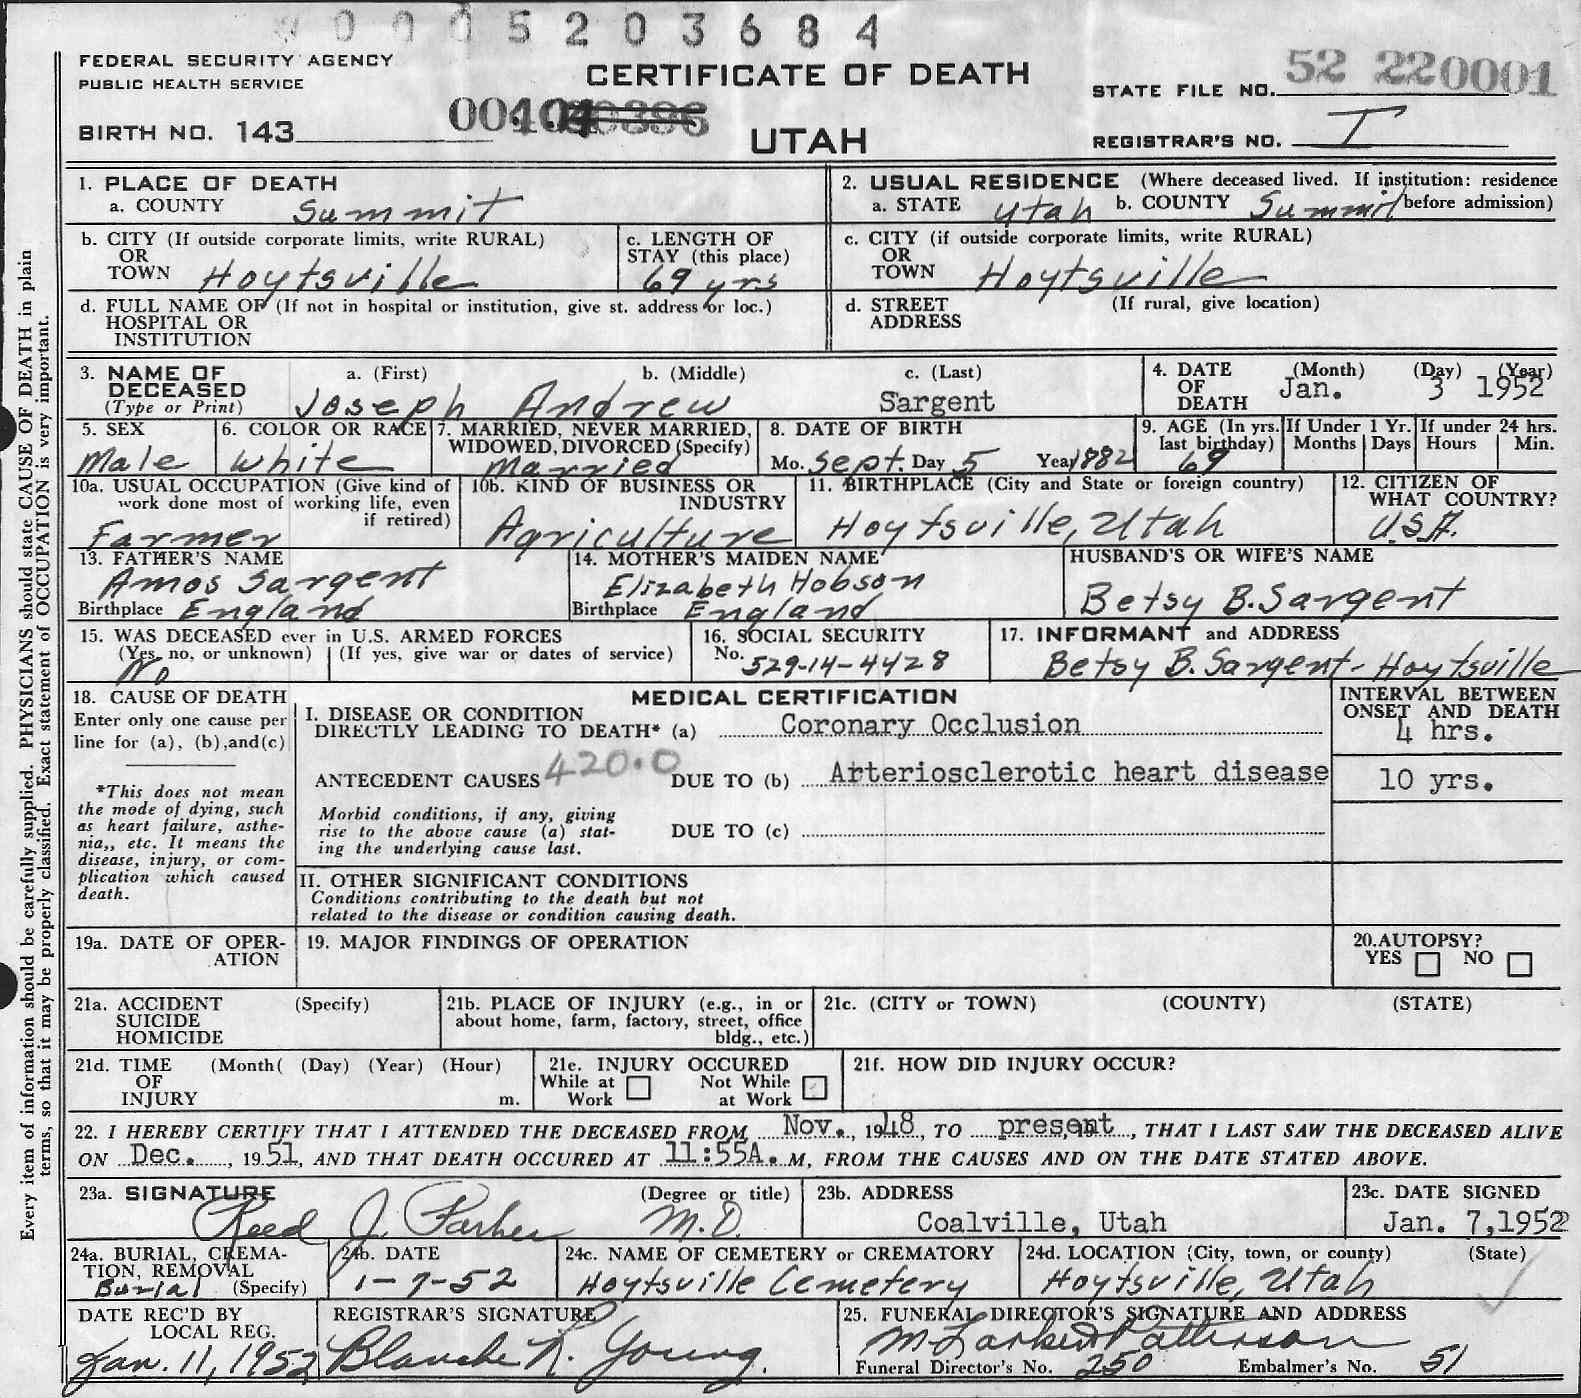 0005203684
FEDERAL SECURITY AGENCY
PUBLIC HEALTH SERVICE
CERTIFICATE OF DEATH
STATE FILE NO. 52 220001
BIRTH NO. 143
UTAH
REGISTRAR'S NO. I
Every item of information should be carefully supplied. PHYSICIANS should state CAUSE OF DEATH in plain
terms, so that it may be properly classified. Exact statement of OCCUPATION is very important.
1. PLACE OF DEATH
a. COUNTY Summit
2. USUAL RESIDENCE (Where deceased lived. If institution: residence
before admission)
a. STATE Utah b. COUNTY Summit
b. CITY (If outside corporate limits, write RURAL)
OR
TOWN Hoytsville
c. LENGTH OF
STAY (this place)
69 yrs
c. CITY (if outside corporate limits, write RURAL)
OR
TOWN Hoytsville
d. FULL NAME OF (If not in hospital or institution, give st. address or loc.)
HOSPITAL OR
INSTITUTION
d. STREET (If rural, give location)
ADDRESS
3. NAME OF
DECEASED
(Type or Print)
a. (First) b. (Middle) c. (Last)
Joseph Andrew Sargent
4. DATE
OF
DEATH
(Month) (Day) (Year)
Jan. 3 1952
5. SEX
Male
6. COLOR OR RACE
White
7. MARRIED, NEVER MARRIED,
WIDOWED, DIVORCED (Specify)
Married
8. DATE OF BIRTH
Mo. Sept. Day 5 Year 1882
9. AGE (In yrs.
last birthday)
69
If Under 1 Yr.
Months Days
If under 24 hrs.
Hours Min.
10a. USUAL OCCUPATION (Give kind of
work done most of working life, even
if retired)
Farmer
10b. KIND OF BUSINESS OR
INDUSTRY
Agriculture
11. BIRTHPLACE (City and State or foreign country)
Hoytsville, Utah
12. CITIZEN OF
WHAT COUNTRY?
U.S.A.
13. FATHER'S NAME
Amos Sargent
Birthplace England
14. MOTHER'S MAIDEN NAME
Elizabeth Hobson
Birthplace England
HUSBAND'S OR WIFE'S NAME
Betsy B. Sargent
15. WAS DECEASED ever in U.S. ARMED FORCES
(Yes, no, or unknown) (If yes, give war or dates of service)
No
16. SOCIAL SECURITY
No. 529-14-4428
17. INFORMANT and ADDRESS
Betsy B. Sargent - Hoytsville
18. CAUSE OF DEATH
Enter only one cause per
line for (a), (b), and(c)
*This does not mean
the mode of dying, such
as heart failure, asthe-
nia,, etc. It means the
disease, injury, or com-
plication which caused
death.
MEDICAL CERTIFICATION
I. DISEASE OR CONDITION
DIRECTLY LEADING TO DEATH* (a) Coronary Occlusion
ANTECEDENT CAUSES 420.0 DUE TO (b) Arteriosclerotic heart disease
Morbid conditions, if any, giving
rise to the above cause (a) stat-
ing the underlying cause last.
DUE TO (c)
INTERVAL BETWEEN
ONSET AND DEATH
4 hrs.
10 yrs.
II. OTHER SIGNIFICANT CONDITIONS
Conditions contributing to the death but not
related to the disease or condition causing death.
19a. DATE OF OPER-
ATION
19. MAJOR FINDINGS OF OPERATION
20.AUTOPSY?
YES NO
21a. ACCIDENT (Specify)
SUICIDE
HOMICIDE
21b. PLACE OF INJURY (e.g., in or
about home, farm, factory, street, office
bldg., etc.)
21c. (CITY or TOWN) (COUNTY) (STATE)
21d. TIME (Month( (Day) (Year) (Hour)
OF
INJURY m.
21e. INJURY OCCURED
While at Work Not While at Work
21f. HOW DID INJURY OCCUR?
22. I HEREBY CERTIFY THAT I ATTENDED THE DECEASED FROM Nov., 1948, TO present, 19, THAT I LAST SAW THE DECEASED ALIVE
ON Dec., 1951, AND THAT DEATH OCCURED AT 11:55A. M, FROM THE CAUSES AND ON THE DATE STATED ABOVE.
23a. SIGNATURE (Degree or title)
Reed J. Farher M.D.
23b. ADDRESS
Coalville, Utah
23c. DATE SIGNED
Jan. 7,1952
24a. BURIAL, CREMA-
TION, REMOVAL
Burial (Specify)
24b. DATE
1-7-52
24c. NAME OF CEMETERY or CREMATORY
Hoytsville Cemetery
24d. LOCATION (City, town, or county) (State)
Hoytsville, Utah
DATE REC'D BY
LOCAL REG.
Jan. 11, 1952
REGISTRAR'S SIGNATURE
Blanche R. Young.
25. FUNERAL DIRECTOR'S SIGNATURE AND ADDRESS
Patterson
Funeral Director's No. 250 Embalmer's No. 51